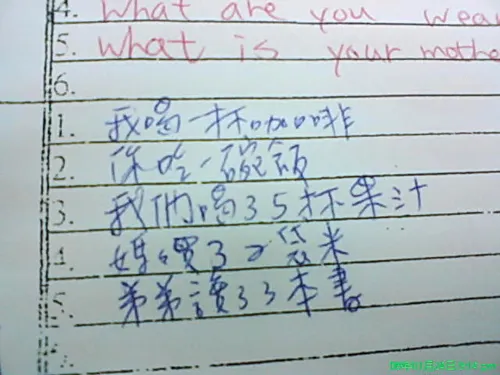 4. What are you wea
5. What is your mothe
6.
1. 我喝一杯咖啡
2. 你吃一碗飯
3. 我們喝了5杯果汁
4. 媽媽買了2袋米
5. 弟弟讀了3本書